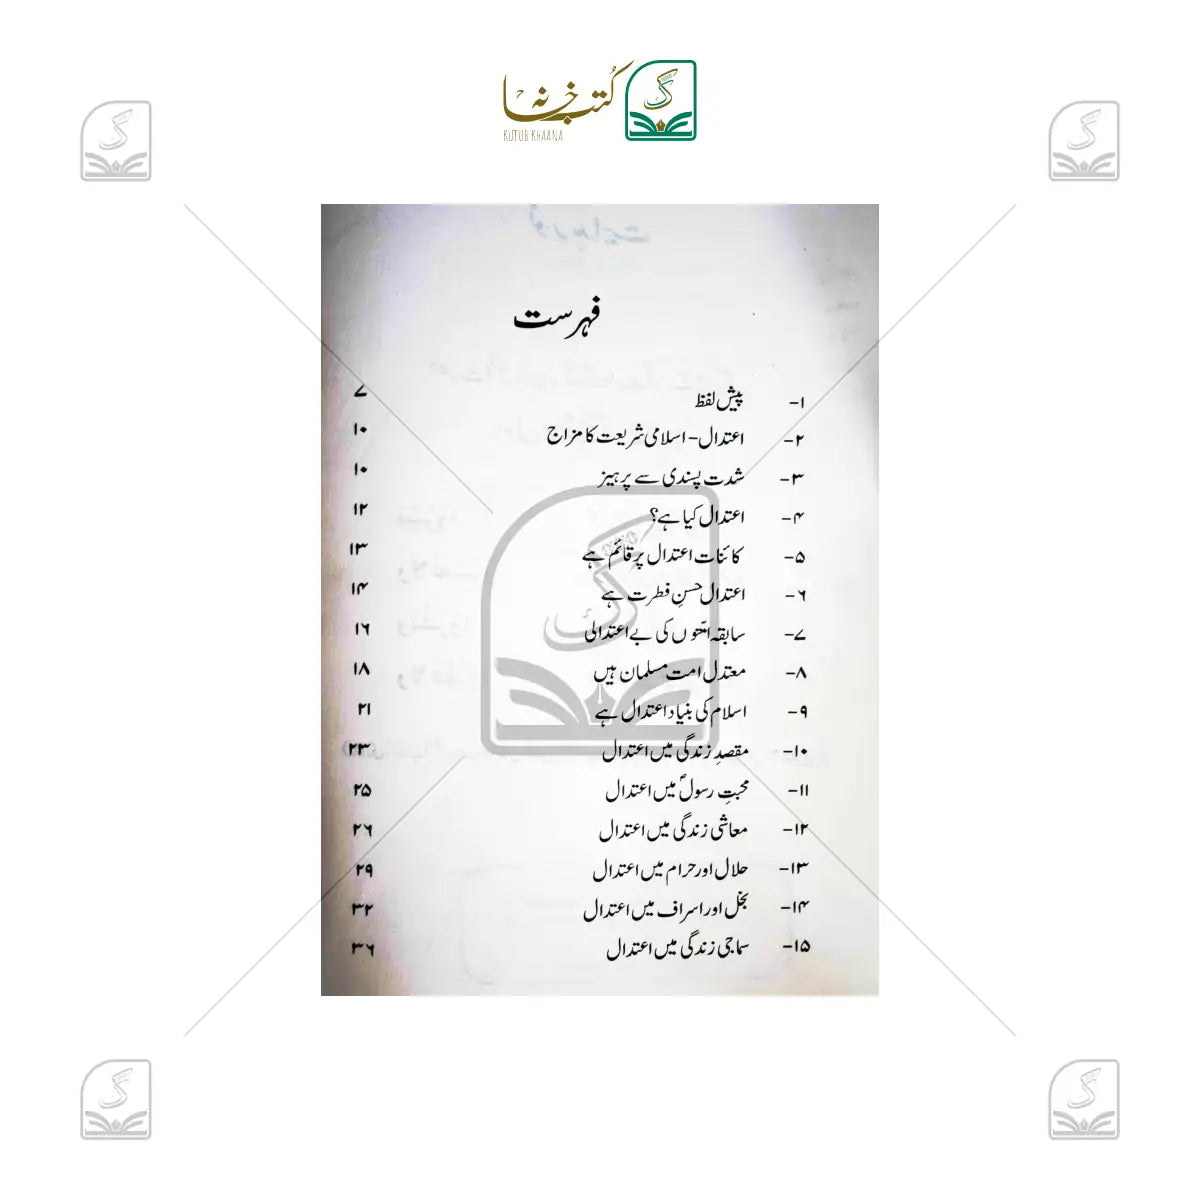 کتب خانہ
KUTUB KHAANA
فہرست
۱- پیش لفظ ۷
۲- اعتدال - اسلامی شریعت کا مزاج ۱۰
۳- شدت پسندی سے پرہیز ۱۰
۴- اعتدال کیا ہے؟ ۱۲
۵- کائنات اعتدال پر قائم ہے ۱۳
۶- اعتدال حسنِ فطرت ہے ۱۴
۷- سابقہ امتّوں کی بے اعتدالی ۱۶
۸- معتدل امت مسلمان ہیں ۱۸
۹- اسلام کی بنیاد اعتدال ہے ۲۱
۱۰- مقصدِ زندگی میں اعتدال ۲۳
۱۱- محبتِ رسولؐ میں اعتدال ۲۵
۱۲- معاشی زندگی میں اعتدال ۲۶
۱۳- حلال اور حرام میں اعتدال ۲۹
۱۴- بخل اور اسراف میں اعتدال ۳۲
۱۵- سماجی زندگی میں اعتدال ۳۶